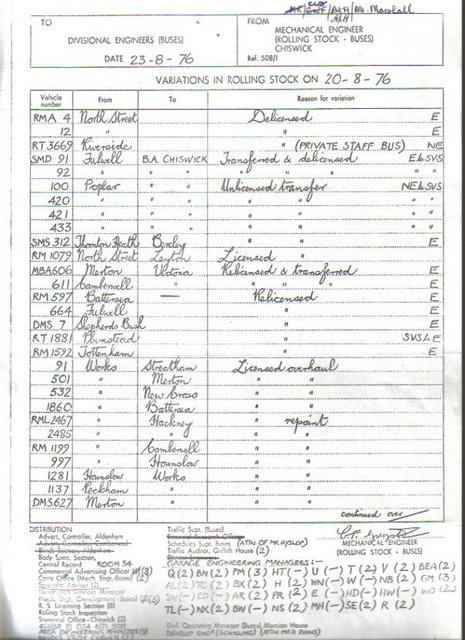 M. Marshall
TO
DIVISIONAL ENGINEERS (BUSES)
DATE 23-8-76
FROM
MECHANICAL ENGINEER
(ROLLING STOCK - BUSES)
CHISWICK
Ref. 508/1
VARIATIONS IN ROLLING STOCK ON 20-8-76
Vehicle number From To Reason for variation
RMA 4 North Street Delicensed E
12 " " E
RT 3669 Riverside " (PRIVATE STAFF BUS) NE
SMD 91 Fulwell B.A. CHISWICK Transferred & delicensed E & SVS
92 " " " " " "
100 Poplar " " Unlicensed transfer NE & SVS
420 " " " " " " "
421 " " " " " " "
433 " " " " " " "
SMS 312 Thornton Heath Bexley " " E
RM 1079 North Street Leyton Licensed "
MBA606 Merton Victoria Relicensed & transferred E
611 Camberwell " " " " E
RM 597 Battersea — Relicensed E
664 Fulwell " E
DMS 7 Shepherds Bush " E
RT 1881 Plumstead " SVS/E
RM 1592 Tottenham " E
91 Works Streatham Licensed overhaul
501 " Merton " "
532 " New Cross " "
1860 " Battersea " "
RML 2467 " Hackney " repaint
2485 " " " "
RM 1199 " Camberwell " "
997 " Hounslow " "
1281 Hounslow Works " "
1137 Peckham " " "
DMS627 Merton " " "
continued over
MECHANICAL ENGINEER
(ROLLING STOCK - BUSES)
DISTRIBUTION
Advert. Controller, Aldenham
Body Spec. Section,
Central Record ROOM 54
Commercial Advertising Officer
Cars Office (Mech. Engr. Buses)
R. S. Licensing Section
Rolling Stock Inspector
Statistical Office - Chiswick (2)
Traffic Supt. (Buses)
Schedules Supt. Buses (ATTN OF MR HYSLOP)
Traffic Auditor, Griffith House (2)
GARAGE ENGINEERING MANAGERS:-
Q (2) BN (2) PM (3) HT (-) U (-) T (2) V (2) BEA (2)
Div. Operating Manager (Buses) Mansion House